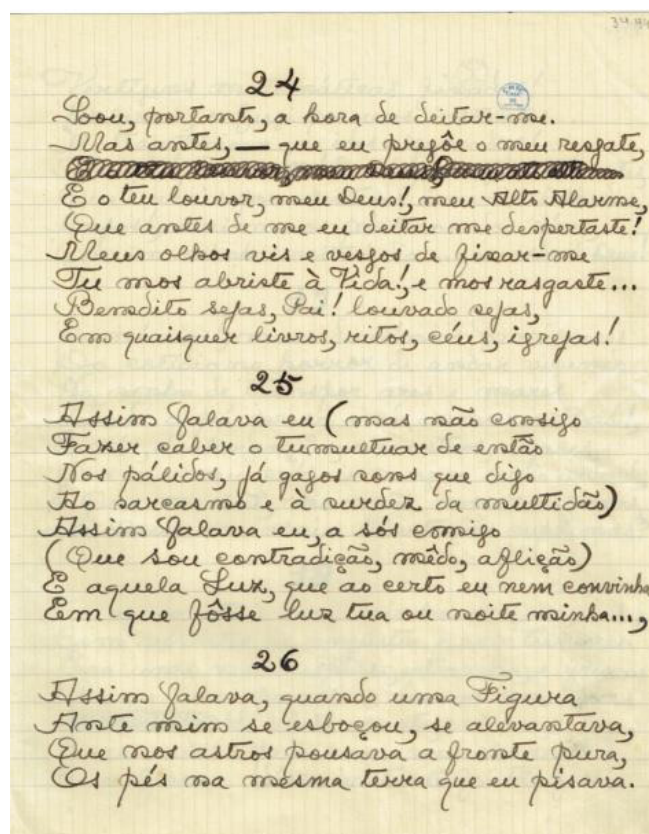 24
Soou, portanto, a hora de deitar-me.
Mas antes, — que eu pregôe o meu resgate,
E o teu louvor, meu Deus!, meu Alto Alarme,
Que antes de me eu deitar me despertaste!
Meus olhos vis e vesgos de fixar-me
Tu mos abriste à Vida!, e mos rasgaste...
Bemdito sejas, Pai! louvado sejas,
Em quaisquer livros, ritos, céus, igrejas!
25
Assim falava eu (mas não consigo
Fazer caber o tumultuar de então
Nos pálidos, já gagos sons que digo
Ao sarcasmo e à surdez da multidão)
Assim falava eu, a sós comigo
(Que sou contradição, mêdo, aflição)
E aquela Luz, que ao certo eu nem convinha
Em que fôsse luz tua ou noite minha...,
26
Assim falava, quando uma Figura
Ante mim se esboçou, se alevantava,
Que nos astros pousava a fronte pura,
Os pés na mesma terra que eu pisava.